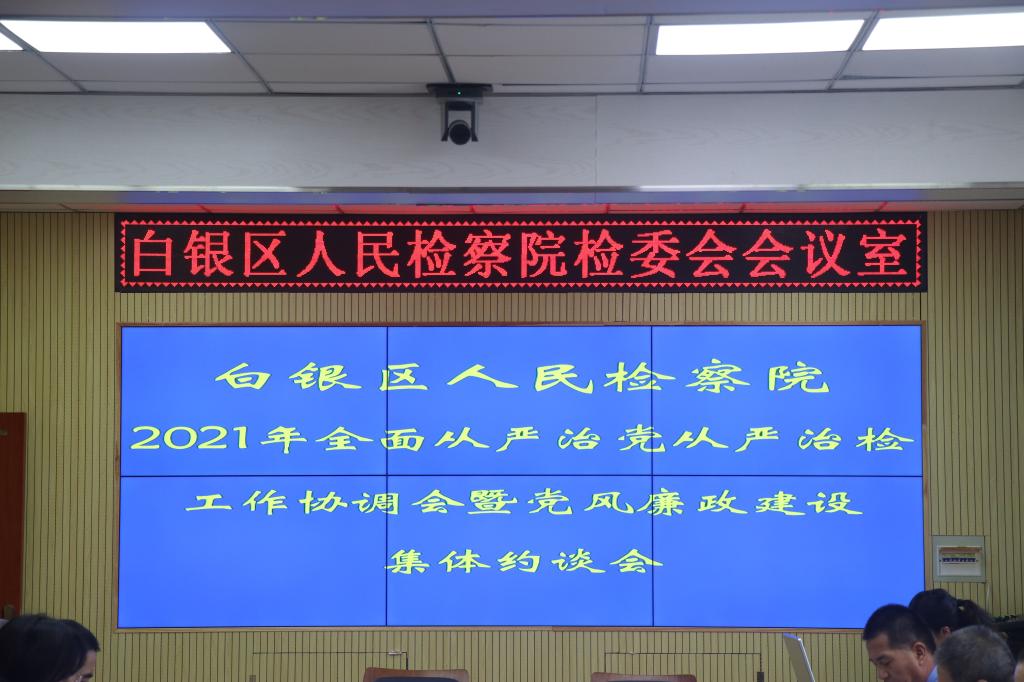 白银区人民检察院检委会会议室
白银区人民检察院
2021年全面从严治党从严治检
工作协调会暨党风廉政建设
集体约谈会